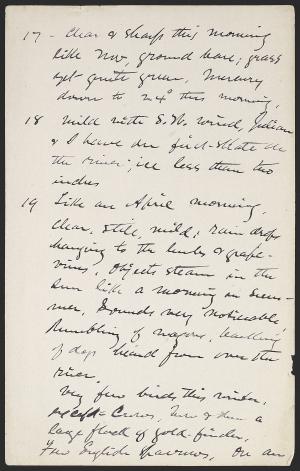 17 - Clear & sharp this morning
like Nov, ground bare, grass
yet quite green, Mercury
down to 24° this morning,
18 Mild with S.W. wind, Julian
& I have our first skate on
the river; ice less than two
inches
19 Like an April morning,
clear, still, mild; rain drops
hanging to the limbs & grape-
vines, Objects steam in the
sun like a morning in Sum-
mer, Sounds very noticeable,
Rumbling of wagons, barking
of dogs heard from over the
river.
Very few birds this winter,
except Crows, now & then a
large flock of gold-finches,
Few English Sparrows, One an